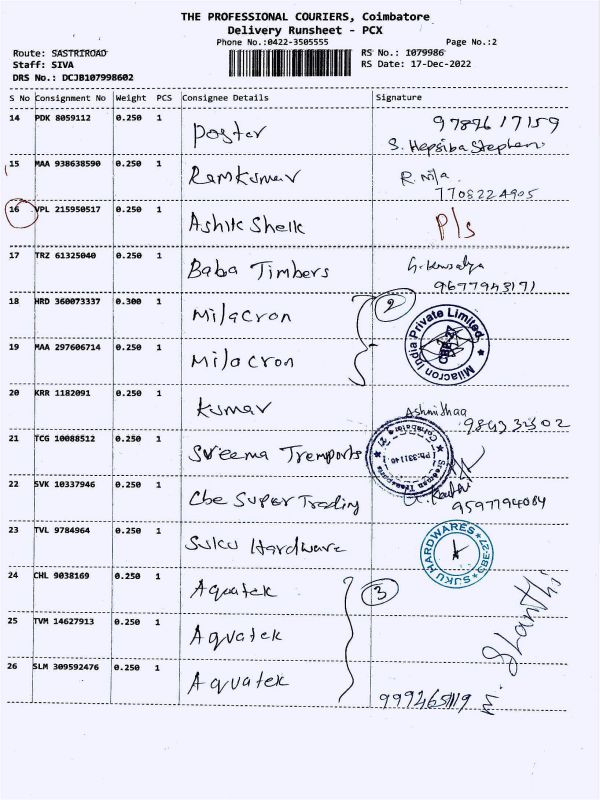 THE PROFESSIONAL COURIERS, Coimbatore
Delivery Runsheet - PCX
Phone No.:0422-3505555 Page No.:2
Route: SASTRIROAD RS No.: I079986
Staff: SIVA RS Date: 17-Dec-2022
DRS No.: DCJB107998602
S No Consignment No Weight PCS Consignee Details Signature
14 PDK 8059112 0.250 1 Poster 9789617159
S. Hepsiba Stephen
15 MAA 938638590 0.250 1 Ramkumar R. Mila
7708224905
16 VPL 215950517 0.250 1 Ashik Sheik P/s
17 TRZ 61325040 0.250 1 Baba Timbers
9677943171
18 HRD 360073337 0.300 1 Milacron 2
Milacron India Private Limited
CBE-27
19 MAA 297606714 0.250 1 Milacron
20 KRR 1182091 0.250 1 Kumar Ashmithaa
21 TCG 10088512 0.250 1 Sreema Trernports
22 SVK 10337946 0.250 1 Cbe Super Trading
9597794084
23 TVL 9784964 0.250 1 Sujku Hardware
SUKU HARDWARES CBE-27
24 CHL 9038169 0.250 1 Aquatek 3
25 TVM 14627913 0.250 1 Aquatek
26 SLM 309592476 0.250 1 Aquatek
M. Shanthi